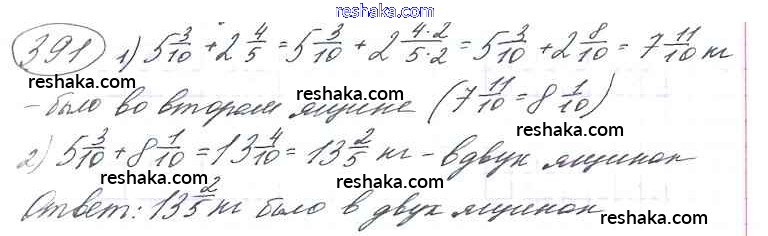 reshaka.com
391 1) 5 3/10 + 2 4/5 = 5 3/10 + 2 4·2/5·2 = 5 3/10 + 2 8/10 = 7 11/10 кг
reshaka.com reshaka.com reshaka.com
- было во втором ящике (7 11/10 = 8 1/10)
reshaka.com reshaka.com reshaka.com
2) 5 3/10 + 8 1/10 = 13 4/10 = 13 2/5 кг - в двух ящиках
reshaka.com reshaka.com reshaka.com
Ответ: 13 2/5 кг было в двух ящиках
reshaka.com